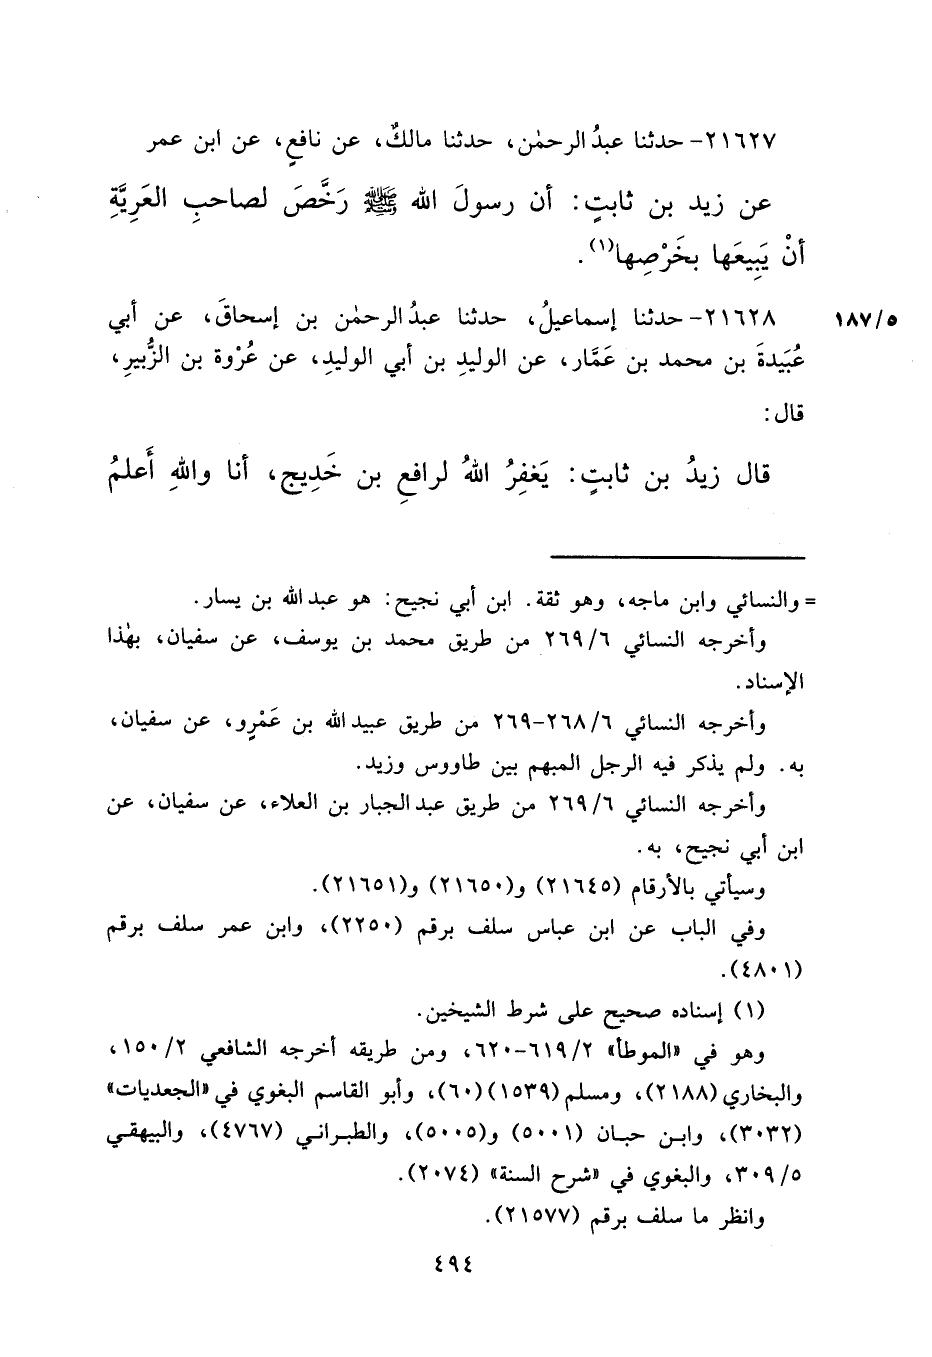 ٢١٦٢٧- حدثنا عبدُ الرحمٰن، حدثنا مالكٌ، عن نافعٍ، عن ابن عمر
عن زيد بن ثابتٍ: أن رسولَ الله ﷺ رَخَّصَ لصاحبِ العَرِيَّةِ
أنْ يَبِيعَها بخَرْصِها(١).
٢١٦٢٨- حدثنا إسماعيلُ، حدثنا عبدُ الرحمٰن بن إسحاقَ، عن أبي ١٨٧/٥
عُبَيدةَ بن محمد بن عَمَّار، عن الوليدِ بن أبي الوليدِ، عن عُرْوة بن الزُّبيرِ،
قال:
قال زيدُ بن ثابتٍ: يَغفِرُ اللهُ لرافعِ بن خَدِيج، أنا واللهِ أَعلمُ
= والنسائي وابن ماجه، وهو ثقة. ابن أبي نجيح: هو عبد الله بن يسار.
وأخرجه النسائي ٢٦٩/٦ من طريق محمد بن يوسف، عن سفيان، بهٰذا
الإسناد.
وأخرجه النسائي ٢٦٨/٦-٢٦٩ من طريق عبيد الله بن عَمْرٍو، عن سفيان،
به. ولم يذكر فيه الرجل المبهم بين طاووس وزيد.
وأخرجه النسائي ٢٦٩/٦ من طريق عبد الجبار بن العلاء، عن سفيان، عن
ابن أبي نجيح، به.
وسيأتي بالأرقام (٢١٦٤٥) و(٢١٦٥٠) و(٢١٦٥١).
وفي الباب عن ابن عباس سلف برقم (٢٢٥٠)، وابن عمر سلف برقم
(٤٨٠١).
(١) إسناده صحيح على شرط الشيخين.
وهو في «الموطأ» ٦١٩/٢-٦٢٠، ومن طريقه أخرجه الشافعي ١٥٠/٢،
والبخاري (٢١٨٨)، ومسلم (١٥٣٩) (٦٠)، وأبو القاسم البغوي في «الجعديات»
(٣٠٣٢)، وابن حبان (٥٠٠١) و(٥٠٠٥)، والطبراني (٤٧٦٧)، والبيهقي
٣٠٩/٥، والبغوي في «شرح السنة» (٢٠٧٤).
وانظر ما سلف برقم (٢١٥٧٧).
٤٩٤